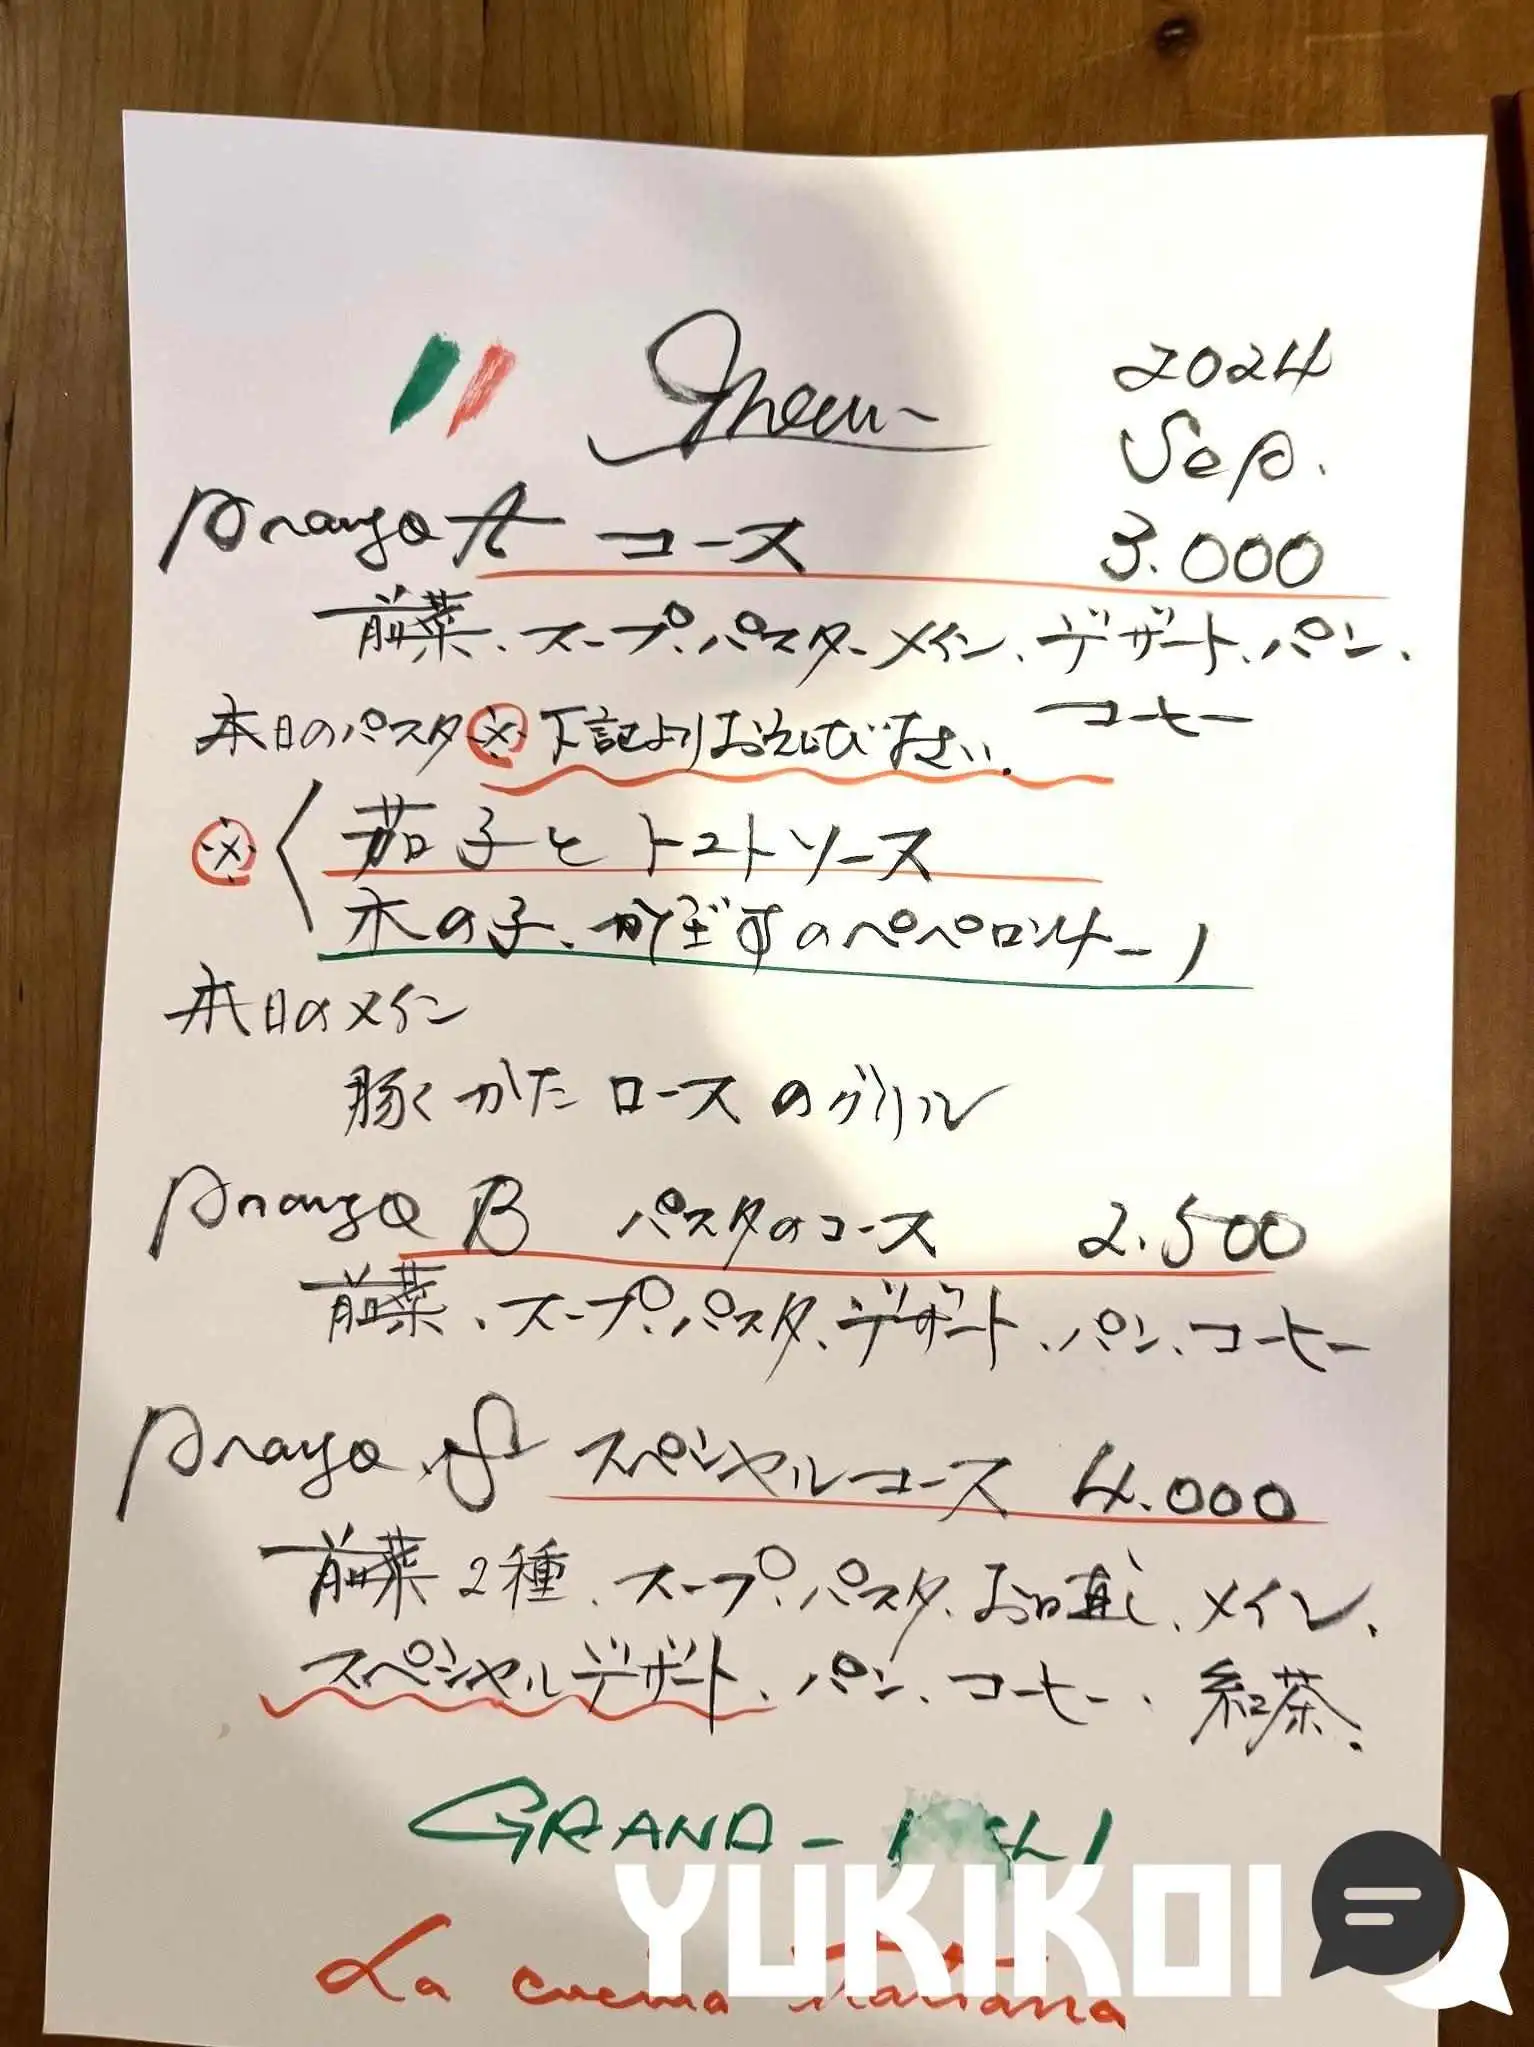 Menu
2024
Sep.
Pranzo A コース 3.000
前菜、スープ、パスタ、メイン、デザート、パン、
コーヒー
本日のパスタ ※ 下記よりお選び下さい。
※ 茄子とトマトソース
木の子、かぼすのペペロンチーノ
本日のメイン
豚くかたロースのグリル
Pranzo B パスタのコース 2.500
前菜、スープ、パスタ、デザート、パン、コーヒー
Pranzo S スペシャルコース 4.000
前菜2種、スープ、パスタ、お口直し、メイン、
スペシャルデザート、パン、コーヒー、紅茶。
GRAND-
YUKIKOI
La cucina Italiana